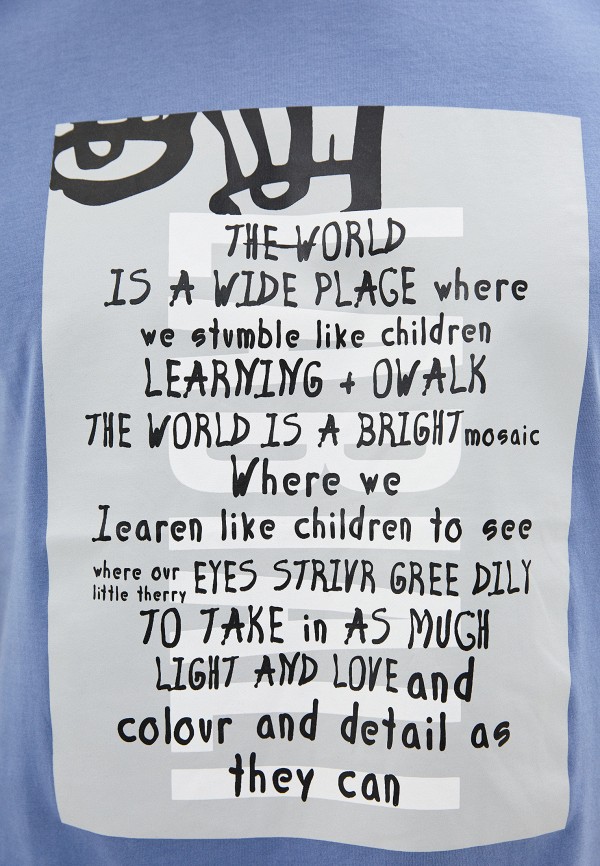 THE WORLD
IS A WIDE PLACE where
we stumble like children
LEARNING + OWALK
THE WORLD IS A BRIGHT mosaic
Where we
Iearen like children to see
where our little therry EYES STRIVR GREE DILY
TO TAKE in AS MUGH
LIGHT AND LOVE and
colour and detail as
they can